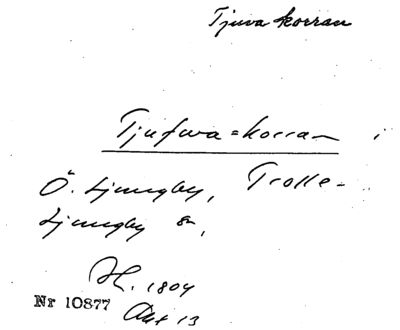 Tjuva korran
Tjufwa=korran i
Ö. Ljungby, Trolle-
Ljungby sn,
H. 1804
Nr 10877
Akt 13